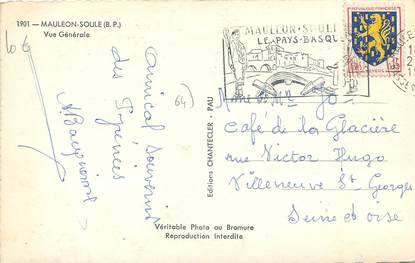 1901 — MAULEON-SOULE (B. P.)
Vue Générale
64)
Amical souvenir
des Pyrénées
MAULEON-SOULE
LE-PAYS-BASQUE
REPUBLIQUE FRANÇAISE
NEVERS
Editions CHANTECLER - PAU
Mme et Mr Jo
Café de la Glacière
rue Victor Hugo
Villeneuve St Georges
Seine et oise
Véritable Photo au Bromure
Reproduction Interdite